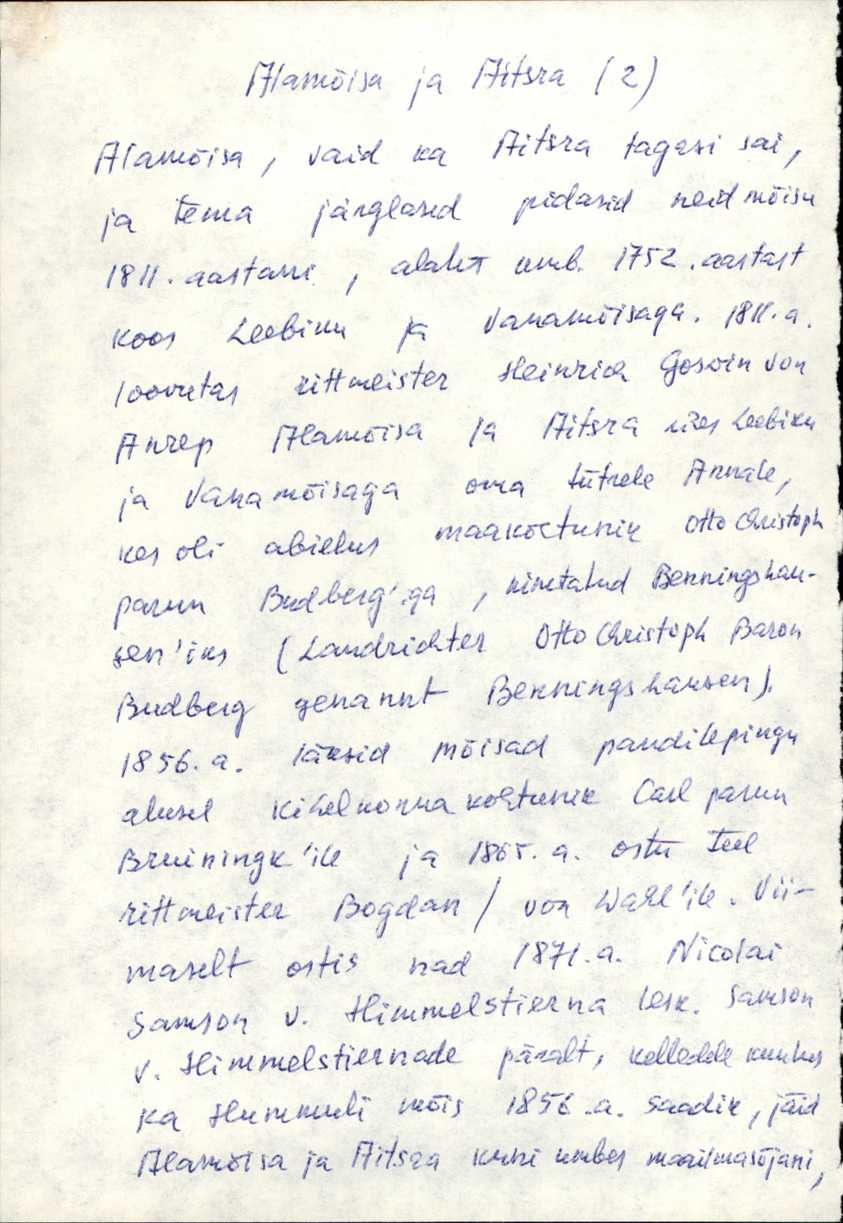 Alamõisa ja Aitsra (2)
Alamõisa, vaid ka Aitsra tagasi sai,
ja tema järglased pidasid neid mõisu
1811. aastani, alalt umb. 1752. aastast
koos Leebiku ja Vanamõisaga. 1811. a.
loovutas rittmeister Heinrich Goswin von
Anrep Alamõisa ja Aitsra ühes Leebiku
ja Vanamõisaga oma tütrele Annale,
kes oli abielus maakohtunik Otto Christoph
parun Budberg'iga, nimetatud Benningshau-
sen'iks (Landrichter Otto Christoph Baron
Budberg genannt Benningshausen).
1856. a. läksid mõisad pandilepingu
alusel kihelkonnakohtunik Carl parun
Bruiningk'ile ja 1865. a. ostu teel
rittmeister Bogdan / von Wahl'ile. Vii-
maselt ostis nad 1871. a. Nicolai
Samson v. Himmelstierna lesk. Samson
v. Himmelstiernade päralt, kelledele kuulus
ka Hummuli mõis 1856. a. saadik, jäid
Alamõisa ja Aitsra kuni umbes maailmasõjani,